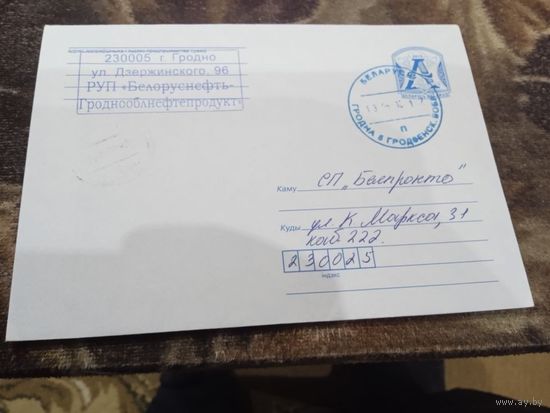 230005 г. Гродно
ул. Дзержинского, 96
РУП «Белоруснефть-
Гроднооблнефтепродукт»
БЕЛАРУСЬ
А
п
ГРОДНА 5 ГРОДЗЕНСК. ВОБЛ.
Каму СП „Белпронто"
Куды ул К Маркса, 31
каб 222.
230025
індэкс
www.ay.by